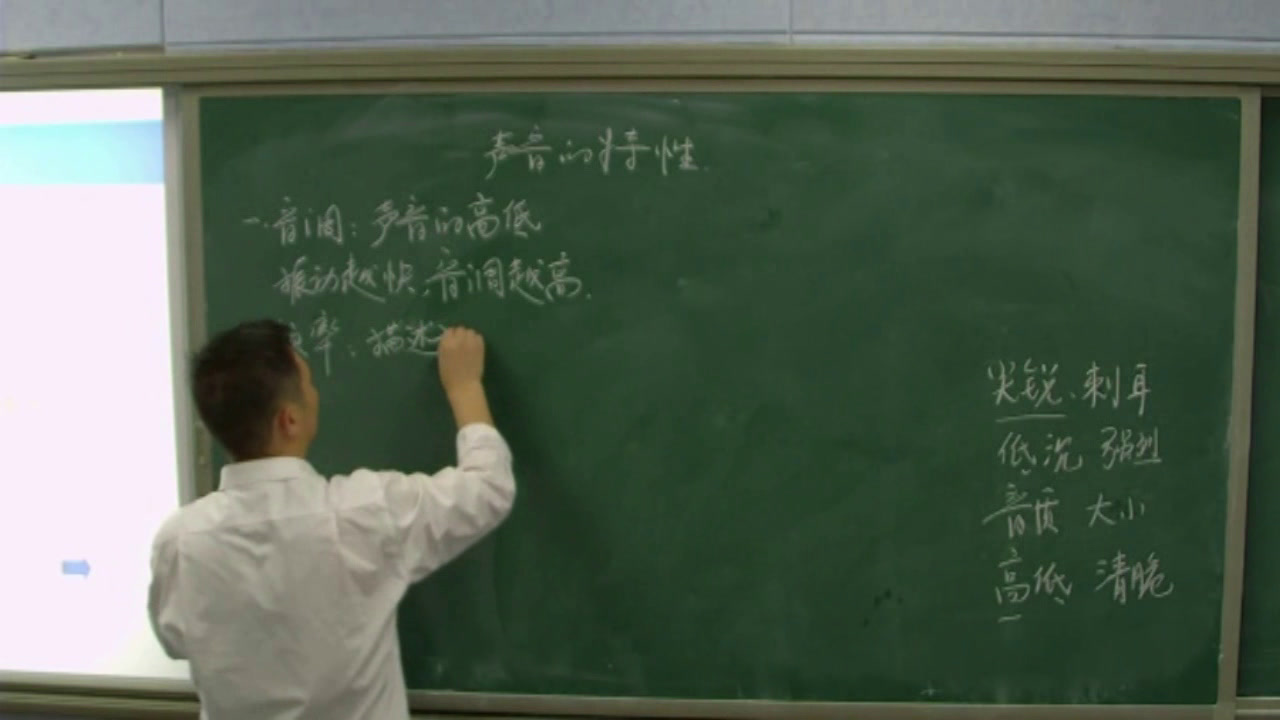 声音的特性.
一.音调:声音的高低
振动越快,音调越高.
频率:描述
尖锐、刺耳
低沉 强烈
音质 大小
高低 清脆